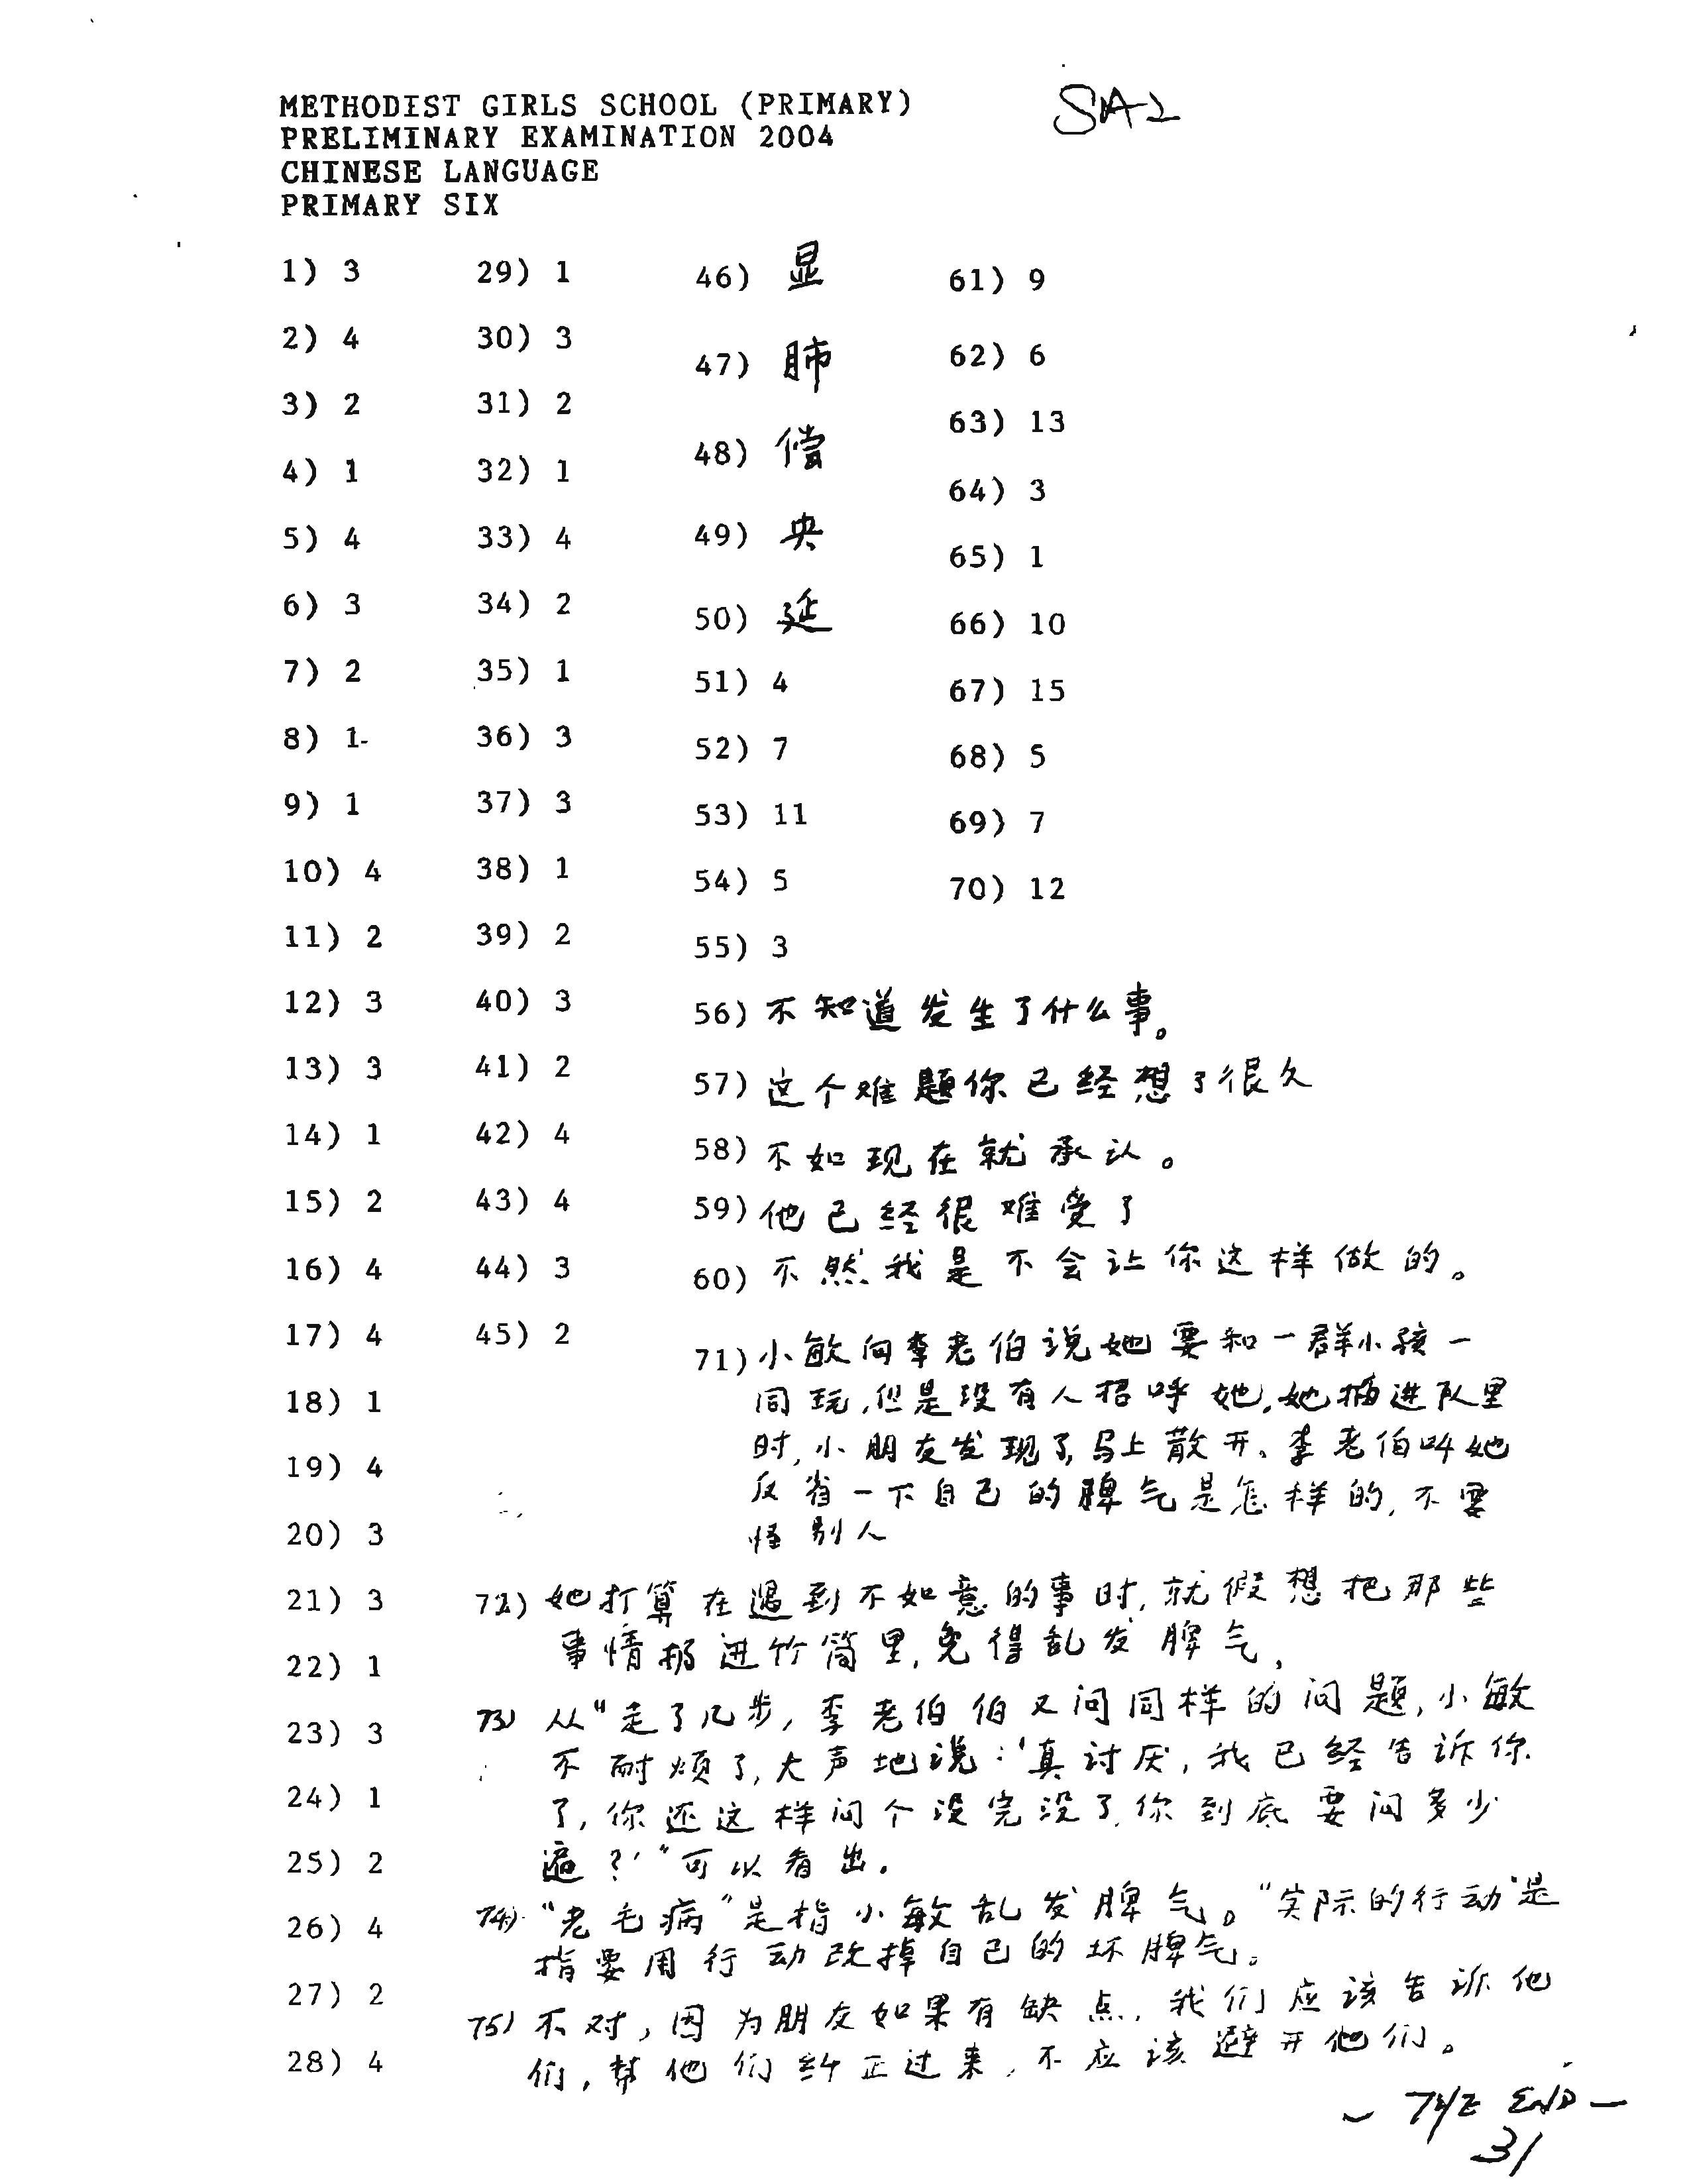 METHODIST GIRLS SCHOOL (PRIMARY)
SA2
PRELIMINARY EXAMINATION 2004
CHINESE LANGUAGE
PRIMARY SIX
1) 3
2) 4
3) 2
4) 1
5) 4
6) 3
7) 2
8) 1
9) 1
10) 4
11) 2
12) 3
13) 3
14) 1
15) 2
16) 4
17) 4
18) 1
19) 4
20) 3
21) 3
22) 1
23) 3
24) 1
25) 2
26) 4
27) 2
28) 4
29) 1
30) 3
31) 2
32) 1
33) 4
34) 2
35) 1
36) 3
37) 3
38) 1
39) 2
40) 3
41) 2
42) 4
43) 4
44) 3
45) 2
46) 显
47) 肺
48) 偿
49) 央
50) 延
51) 4
52) 7
53) 11
54) 5
55) 3
56) 不知道发生了什么事。
57) 这个难题你已经想了很久
58) 不如现在就承认。
59) 他已经很难受了
60) 不然我是不会让你这样做的。
61) 9
62) 6
63) 13
64) 3
65) 1
66) 10
67) 15
68) 5
69) 7
70) 12
71) 小敏向李老伯说她要和一群小孩一
同玩,但是没有人招呼她,她插进队里
时,小朋友发现了,马上散开。李老伯叫她
反省一下自己的脾气是怎样的,不要
怪别人
72) 她打算在遇到不如意的事时,就假想把那些
事情扔进竹筒里,免得乱发脾气,
73) 从“走了几步,李老伯伯又问同样的问题,小敏
不耐烦了,大声地说:‘真讨厌,我已经告诉你
了,你还这样问个没完没了,你到底要问多少
遍?’”可以看出.
74) “老毛病”是指小敏乱发脾气。“实际的行动”是
指要用行动改掉自己的坏脾气。
75) 不对,因为朋友如果有缺点,我们应该告诉他
们,帮他们纠正过来,不应该避开他们。
— THE END —
31